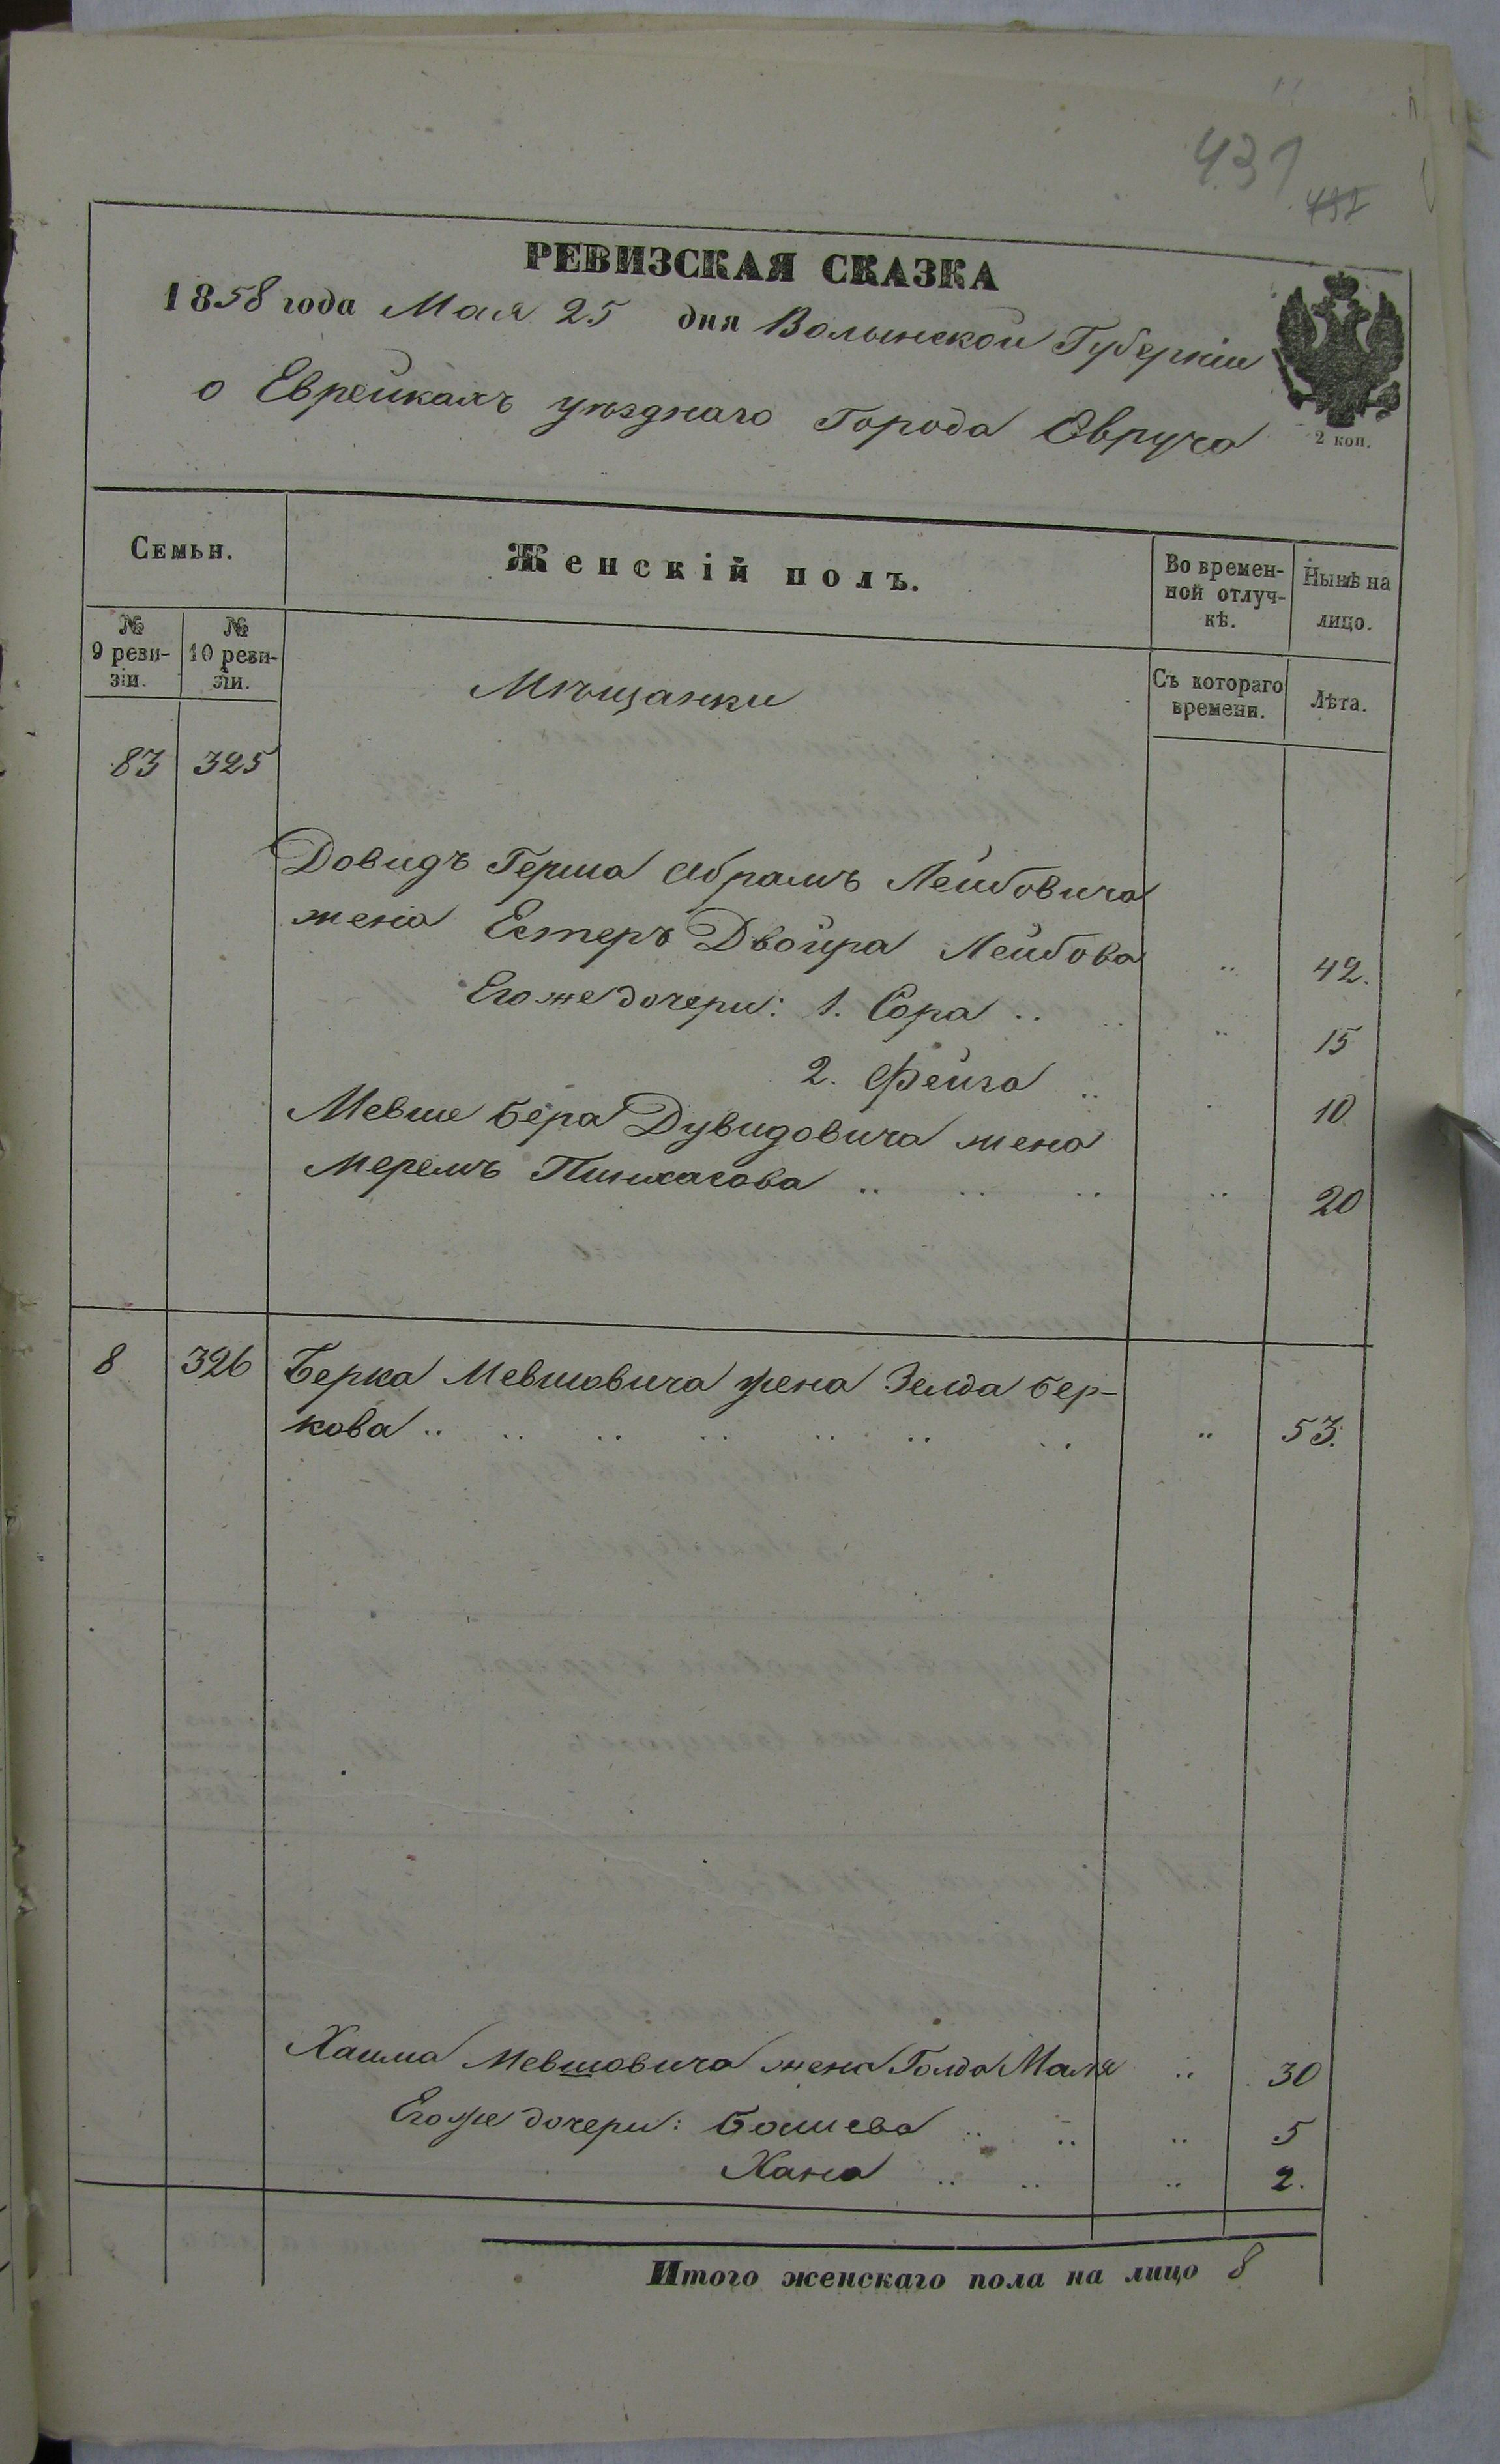 431
431
РЕВИЗСКАЯ СКАЗКА
1858 года Мая 25 дня Волынской Губерніи
о Еврейкахъ уѣзднаго города Овруча
2 коп.
Семьи.
Женскій полъ.
Во времен-
ной отлуч-
кѣ.
Нынѣ на
лицо.
№
9 реви-
зіи.
№
10 реви-
зіи.
Съ котораго
времени.
Лѣта.
Мѣщанки
83 325
Довидъ Герша Абрамъ Лейбовича
жена Естеръ Двойра Лейбова " 42.
Его же дочери: 1. Сора .. .. " 15
2. Фейга .. " 10
Мевше Бера Дувидовича жена
Меремъ Пинхасова .. .. .. " 20
8 326 Берка Мевшовича жена Зелда Бер-
кова .. .. .. .. .. .. .. " 53.
Хаима Мевшовича жена Голда Маля " 30
Его же дочери: Башева .. .. " 5
Хана .. .. " 2.
Итого женскаго пола на лицо 8